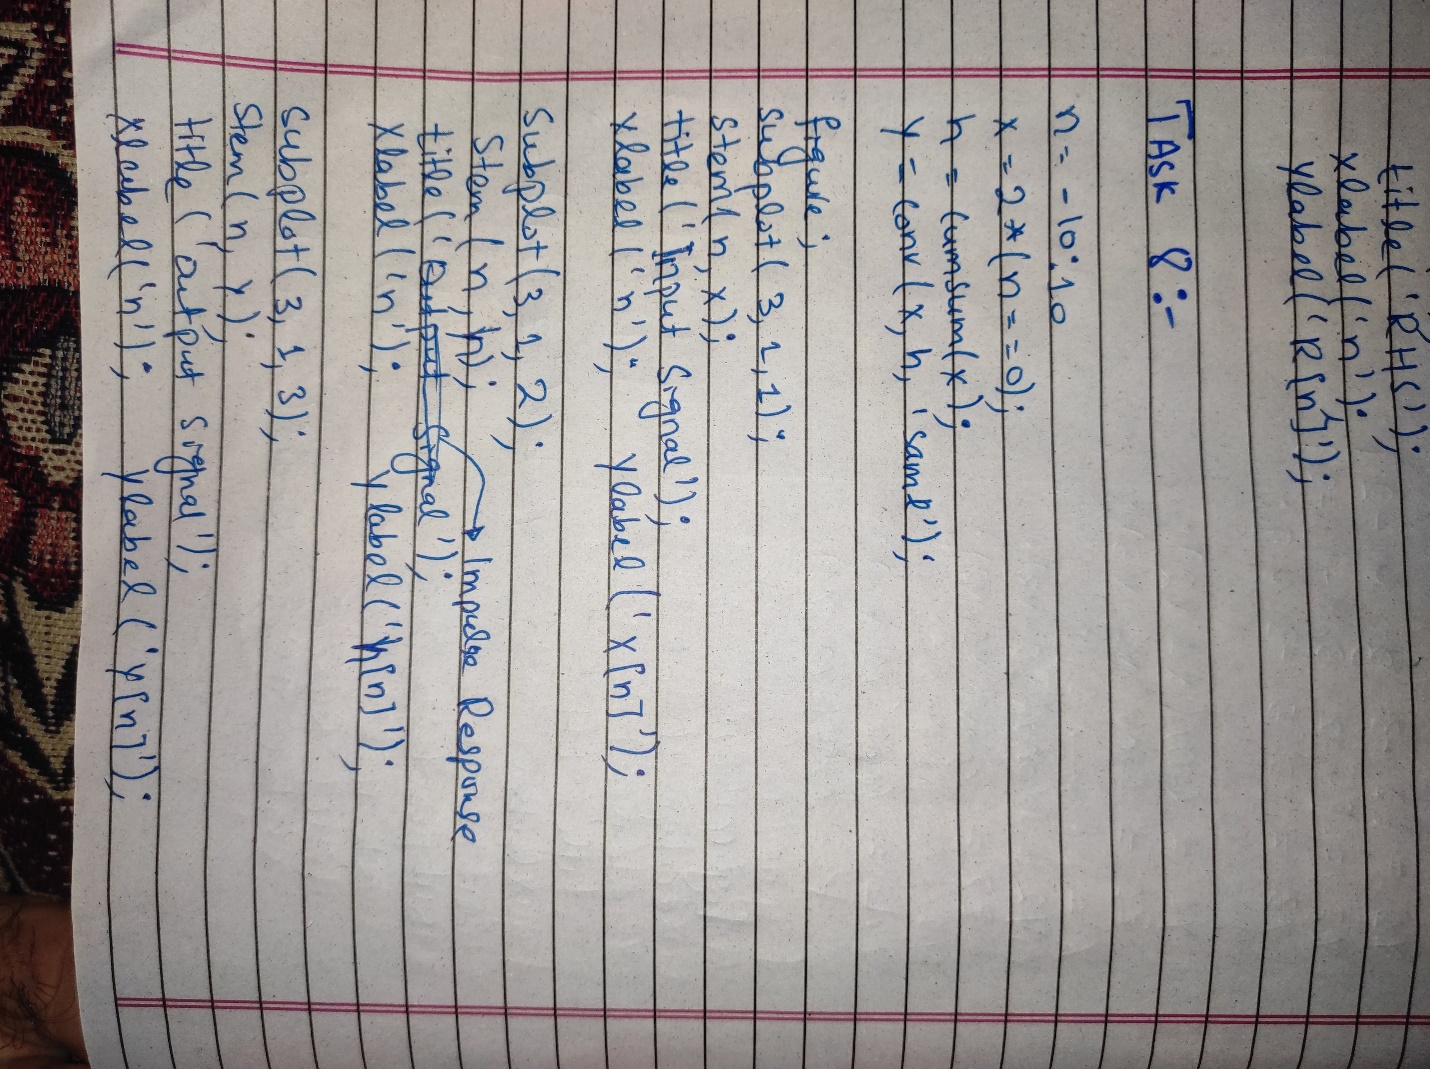 title('RHS');
xlabel('n');
ylabel('R[n]');
TASK 8:-
n = -10:10
x = 2*(n==0);
h = cumsum(x);
y = conv(x, h, 'same');
figure;
subplot(3,1,1);
stem(n, x);
title('Input Signal');
xlabel('n'); ylabel('x[n]');
Subplot(3,1,2);
Stem(n, h);
title('Output Signal'); Impulse Response
xlabel('n'); ylabel('h[n]');
Subplot(3,1,3);
Stem(n, y);
title('output signal');
xlabel('n'); ylabel('y[n]');